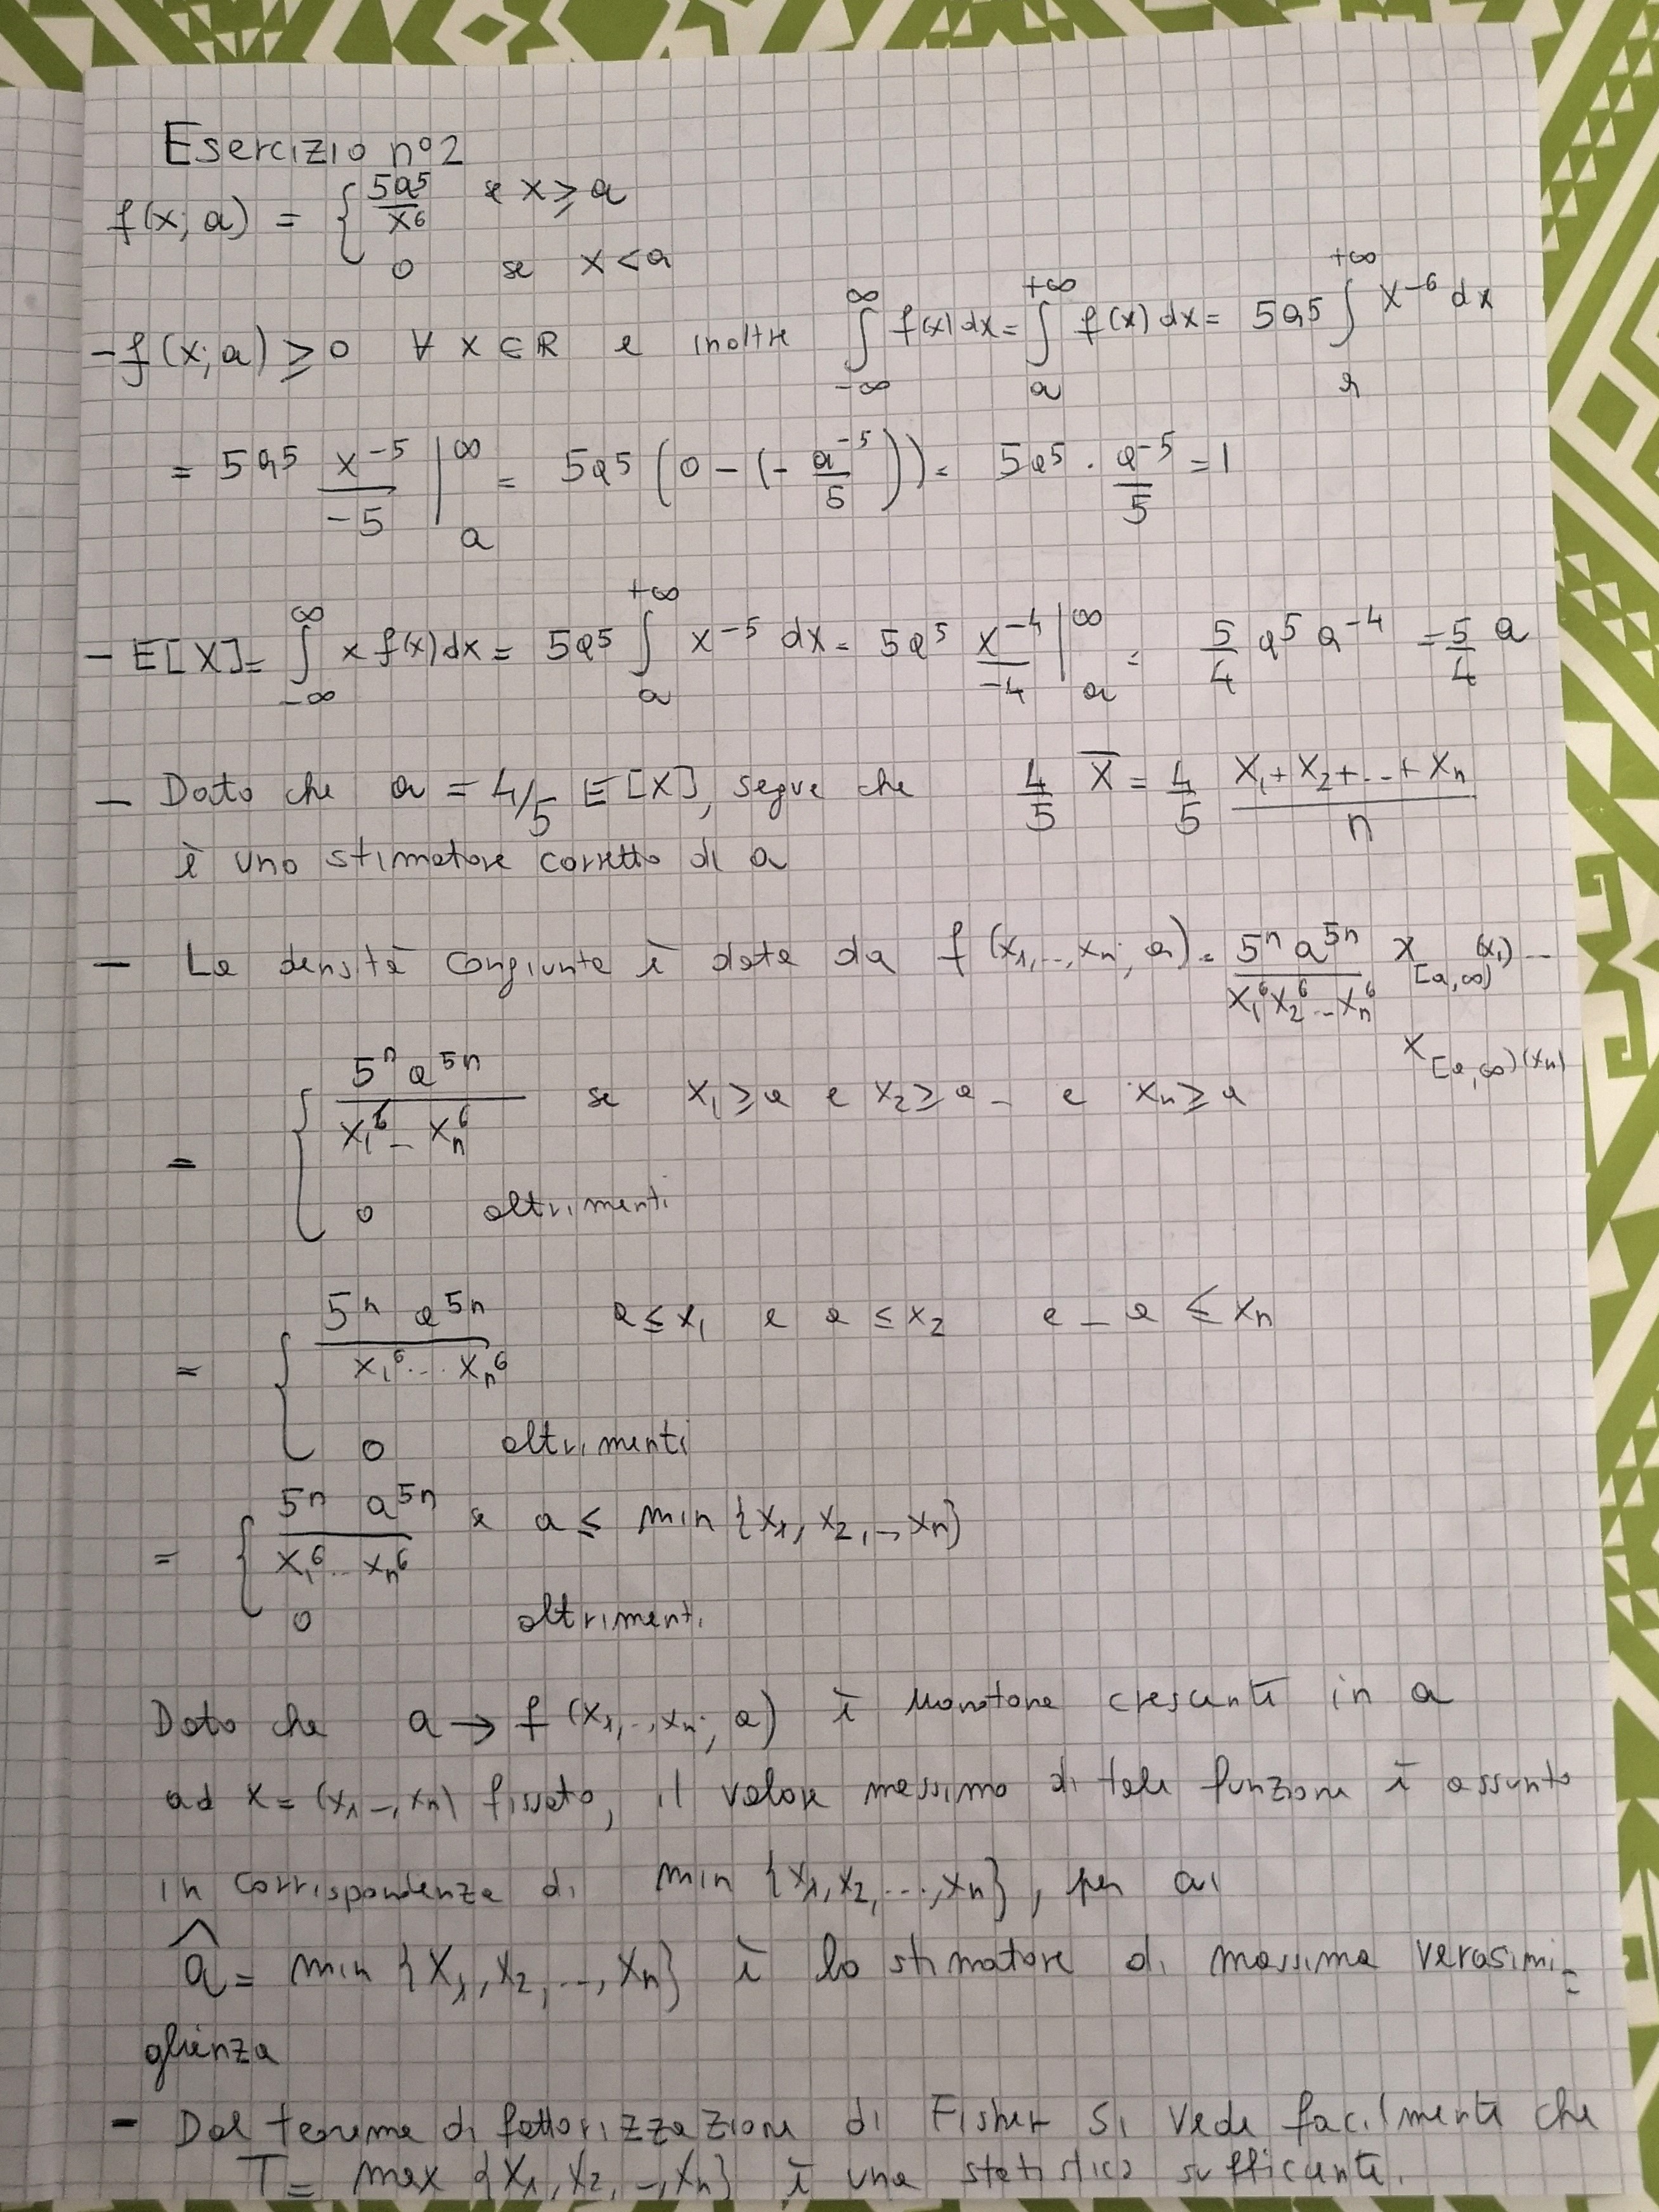 Esercizio n°2
f(x; a) = { 5a⁵/x⁶ se x ≥ a
0 se x < a
- f(x; a) ≥ 0 ∀ x ∈ R e inoltre ∫_{-∞}^{∞} f(x) dx = ∫_{a}^{+∞} f(x) dx = 5a⁵ ∫_{a}^{+∞} x⁻⁶ dx
= 5a⁵ x⁻⁵/-5 |_{a}^{∞} = 5a⁵ (0 - (- a⁻⁵/5)) = 5a⁵ · a⁻⁵/5 = 1
- E[X] = ∫_{-∞}^{∞} x f(x) dx = 5a⁵ ∫_{a}^{+∞} x⁻⁵ dx = 5a⁵ x⁻⁴/-4 |_{a}^{∞} = 5/4 a⁵ a⁻⁴ = 5/4 a
- Dato che a = 4/5 E[X], segue che 4/5 X̅ = 4/5 (X₁ + X₂ + ... + Xₙ)/n
è uno stimatore corretto di a
- La densità congiunta è data da f(x₁, .., xₙ; a) = 5ⁿ a⁵ⁿ / x₁⁶ x₂⁶ ... xₙ⁶ χ_{[a,∞)}(x₁) ...
χ_{[a,∞)}(xₙ)
= { 5ⁿ a⁵ⁿ / x₁⁶ ... xₙ⁶ se x₁ ≥ a e x₂ ≥ a ... e xₙ ≥ a
0 altrimenti
= { 5ⁿ a⁵ⁿ / x₁⁶ ... xₙ⁶ a ≤ x₁ e a ≤ x₂ e ... a ≤ xₙ
0 altrimenti
= { 5ⁿ a⁵ⁿ / x₁⁶ ... xₙ⁶ se a ≤ min {x₁, x₂, .., xₙ}
0 altrimenti
Dato che a → f(x₁, .., xₙ; a) è monotona crescente in a
ad x = (x₁ .., xₙ) fissato, il valore massimo di tale funzione è assunto
in corrispondenza di min {x₁, x₂, ..., xₙ}, per cui
â = min {X₁, X₂, .., Xₙ} è lo stimatore di massima verosimi=
glienza
- Dal teorema di fattorizzazione di Fisher si vede facilmente che
T = max {X₁, X₂, .., Xₙ} è una statistica sufficiente.